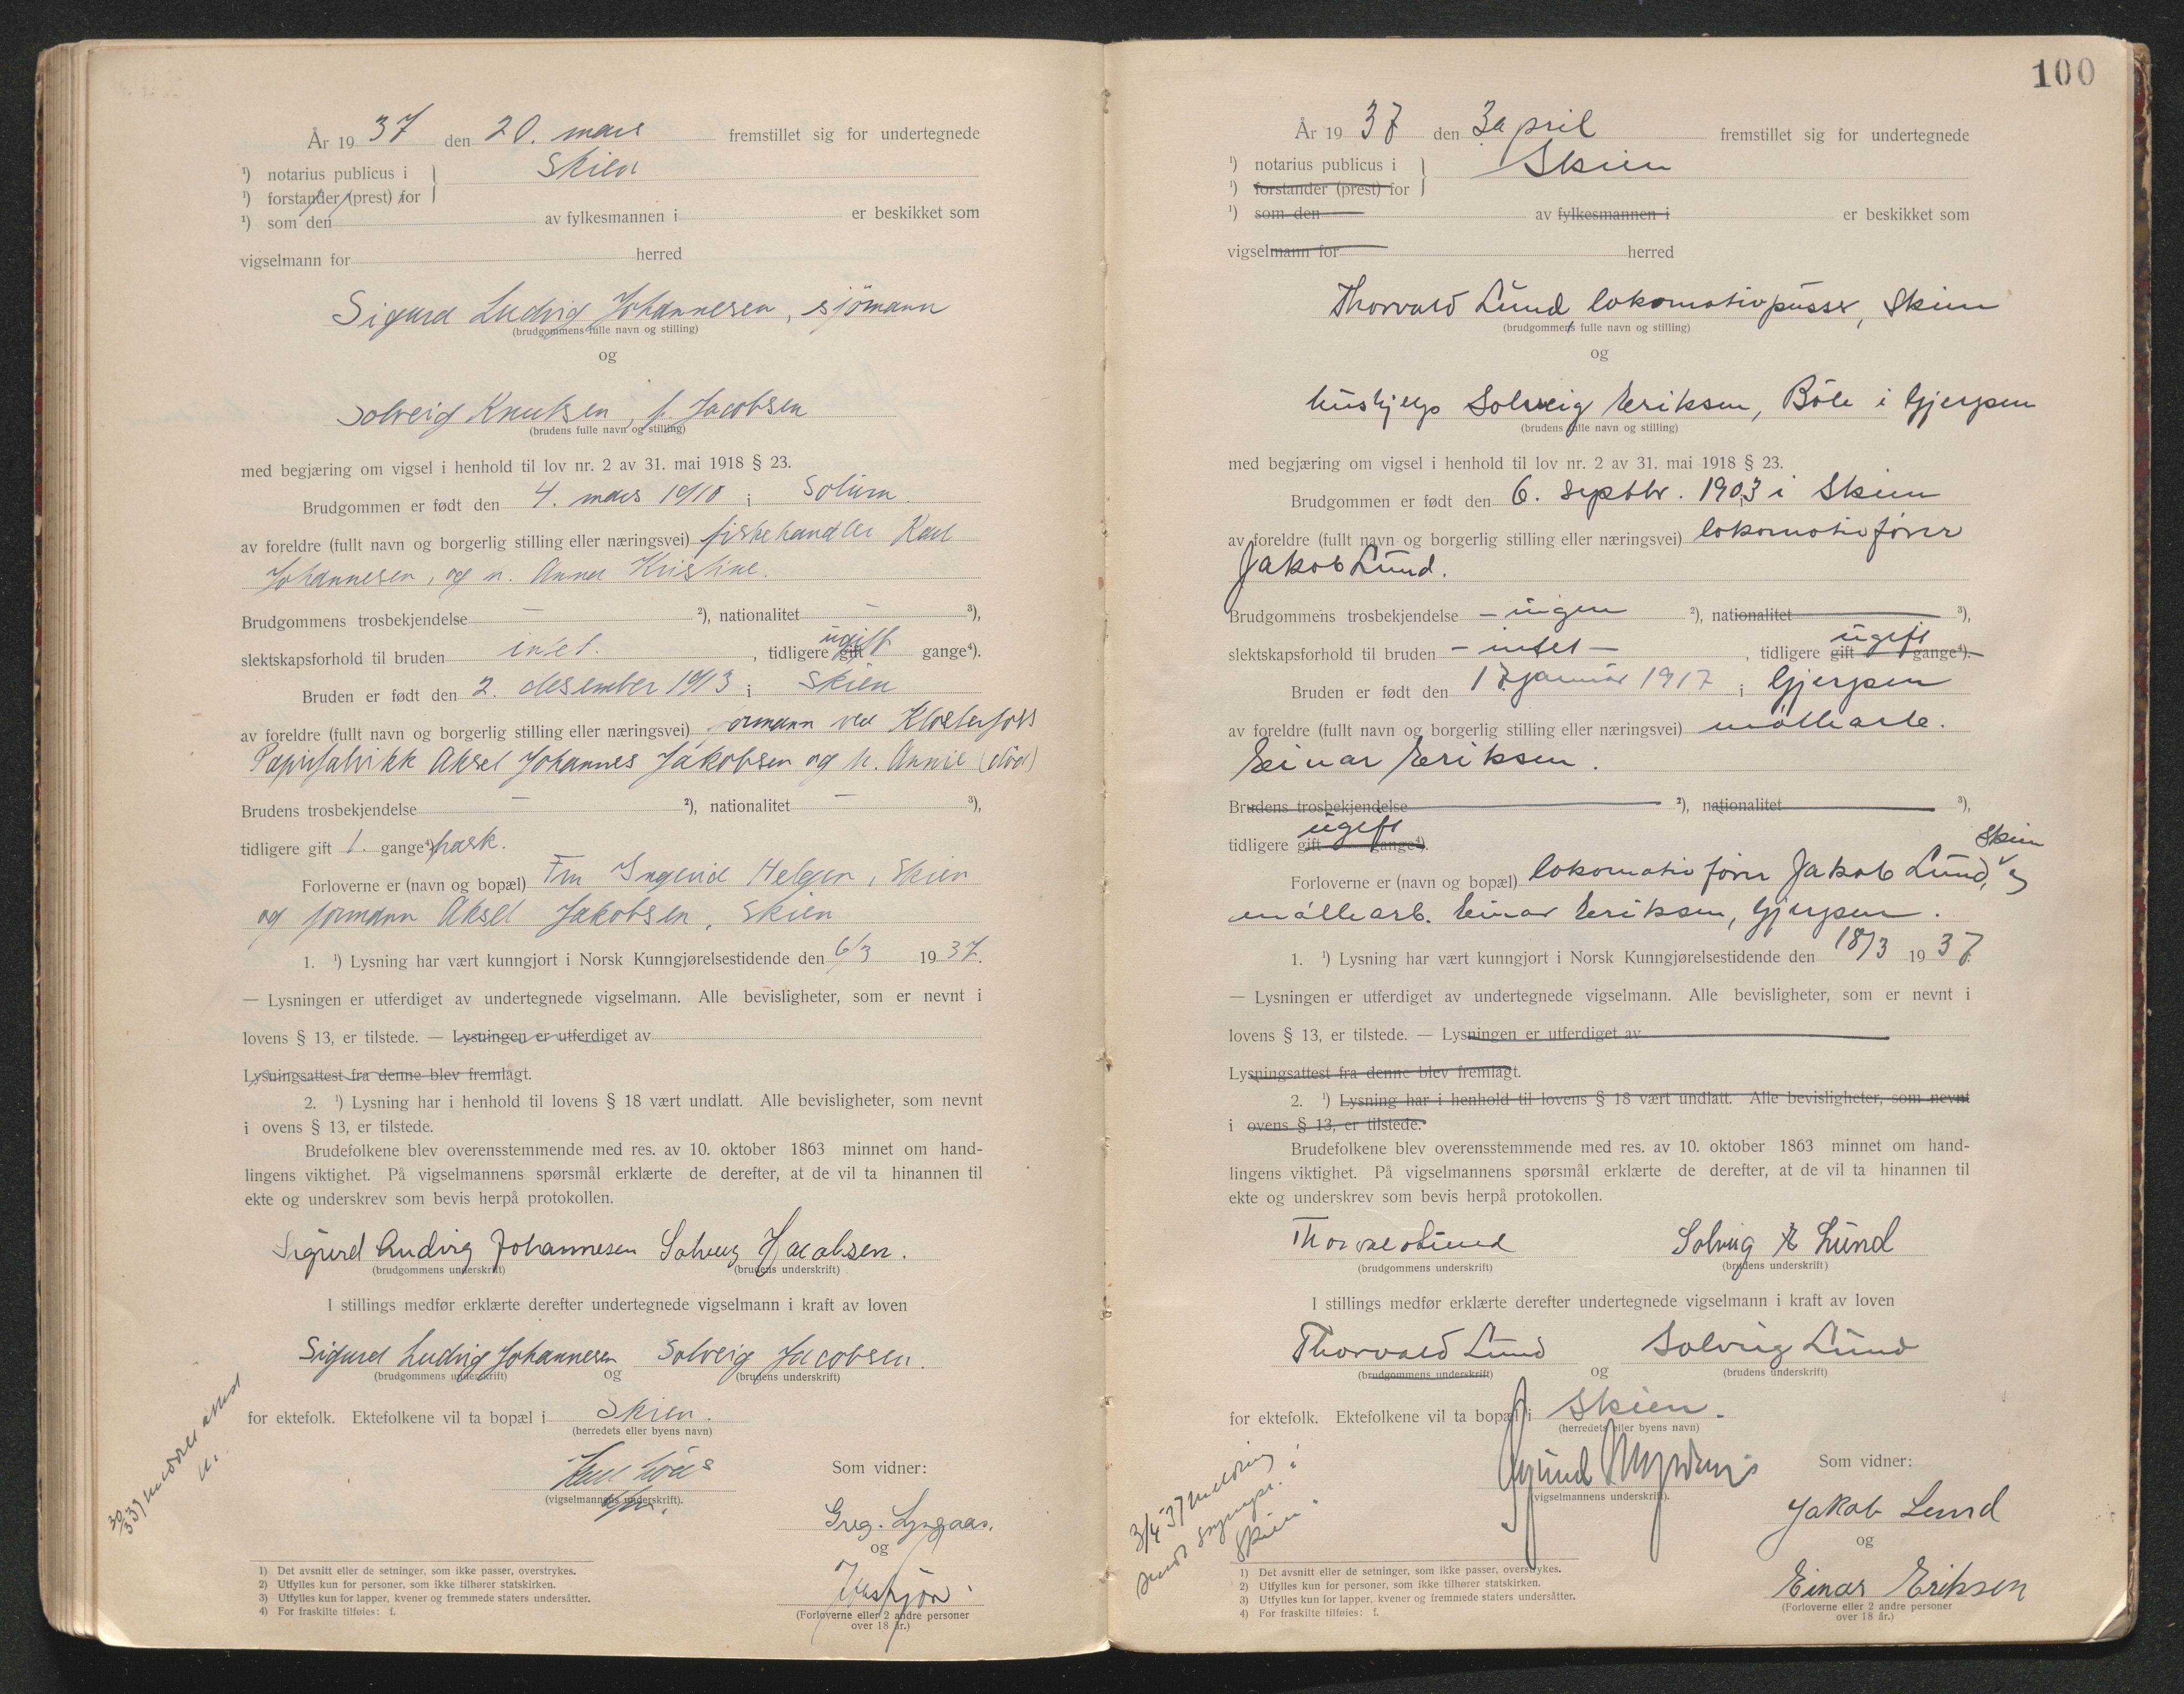 År 19 37 den 20. mars fremstillet sig for undertegnede
¹) notarius publicus i } Skien
¹) forstander (prest) for
¹) som den av fylkesmannen i er beskikket som
vigselmann for herred
Sigurd Ludvig Johannesen, sjömann
(brudgommens fulle navn og stilling)
og
Solveig Knutsen, f. Jacobsen
(brudens fulle navn og stilling)
med begjæring om vigsel i henhold til lov nr. 2 av 31. mai 1918 § 23.
Brudgommen er født den 4. mars 1910 i Solum.
av foreldre (fullt navn og borgerlig stilling eller næringsvei) fiskehandler Karl
Johannesen, og h. Anna Kristine.
Brudgommens trosbekjendelse — ²), nationalitet — ³),
slektskapsforhold til bruden intet. , tidligere gift ugift gange⁴).
Bruden er født den 2. desember 1913 i Skien
av foreldre (fullt navn og borgerlig stilling eller næringsvei) formann ved Klosterfoss
Papirfabrikk Aksel Johannes Jakobsen og h. Annie (död)
Brudens trosbekjendelse — ²), nationalitet — ³),
tidligere gift 1. gange⁴) frask.
Forloverne er (navn og bopæl) Fru Ingerid Helgen, Skien
og formann Aksel Jakobsen, Skien
1. ¹) Lysning har vært kunngjort i Norsk Kunngjørelsestidende den 6/3 19 37.
— Lysningen er utferdiget av undertegnede vigselmann. Alle bevisligheter, som er nevnt i
lovens § 13, er tilstede. — Lysningen er utferdiget av
Lysningsattest fra denne blev fremlagt.
2. ¹) Lysning har i henhold til lovens § 18 vært undlatt. Alle bevisligheter, som nevnt
i ovens § 13, er tilstede.
Brudefolkene blev overensstemmende med res. av 10. oktober 1863 minnet om hand-
lingens viktighet. På vigselmannens spørsmål erklærte de derefter, at de vil ta hinannen til
ekte og underskrev som bevis herpå protokollen.
Sigurd Ludvig Johannesen Solveig Jacobsen.
(brudgommens underskrift) (brudens underskrift)
I stillings medfør erklærte derefter undertegnede vigselmann i kraft av loven
Sigurd Ludvig Johannesen Solveig Jacobsen.
(brudgommens underskrift) og (brudens underskrift)
for ektefolk. Ektefolkene vil ta bopæl i Skien.
(herredets eller byens navn)
Som vidner:
(vigselmannens underskrift).
Greg. Lyngaas.
og
(Forloverne eller 2 andre personer
over 18 år.)
1) Det avsnitt eller de setninger, som ikke passer, overstrykes.
2) Utfylles kun for personer, som ikke tilhører statskirken.
3) Utfylles kun for lapper, kvener og fremmede staters undersåtter.
4) For fraskilte tilføies: f.
100
År 19 37 den 3 april fremstillet sig for undertegnede
¹) notarius publicus i } Skien
¹) forstander (prest) for
¹) som den av fylkesmannen i er beskikket som
vigselmann for herred
Thorvald Lund, lokomotivpusser, Skien
(brudgommens fulle navn og stilling)
og
hushjelp Solveig Eriksen, Böle i Gjerpen
(brudens fulle navn og stilling)
med begjæring om vigsel i henhold til lov nr. 2 av 31. mai 1918 § 23.
Brudgommen er født den 6. septbr. 1903 i Skien
av foreldre (fullt navn og borgerlig stilling eller næringsvei) lokomotivfører
Jakob Lund.
Brudgommens trosbekjendelse — ingen ²), nationalitet ³),
slektskapsforhold til bruden — intet — , tidligere gift ugift gange⁴).
Bruden er født den 17. januar 1917 i Gjerpen
av foreldre (fullt navn og borgerlig stilling eller næringsvei) møllearb.
Einar Eriksen.
Brudens trosbekjendelse ²), nationalitet ³),
tidligere gift ugift gange⁴).
Forloverne er (navn og bopæl) lokomotivfører Jakob Lund, Skien og
møllearb. Einar Eriksen, Gjerpen.
1. ¹) Lysning har vært kunngjort i Norsk Kunngjørelsestidende den 18/3 19 37.
— Lysningen er utferdiget av undertegnede vigselmann. Alle bevisligheter, som er nevnt i
lovens § 13, er tilstede. — Lysningen er utferdiget av
Lysningsattest fra denne blev fremlagt.
2. ¹) Lysning har i henhold til lovens § 18 vært undlatt. Alle bevisligheter, som nevnt
i ovens § 13, er tilstede.
Brudefolkene blev overensstemmende med res. av 10. oktober 1863 minnet om hand-
lingens viktighet. På vigselmannens spørsmål erklærte de derefter, at de vil ta hinannen til
ekte og underskrev som bevis herpå protokollen.
Thorvald Lund Solveig E Lund
(brudgommens underskrift) (brudens underskrift)
I stillings medfør erklærte derefter undertegnede vigselmann i kraft av loven
Thorvald Lund Solveig Lund
(brudgommens underskrift) og (brudens underskrift)
for ektefolk. Ektefolkene vil ta bopæl i Skien.
(herredets eller byens navn)
3/4 37 melding
Skien
Som vidner:
(vigselmannens underskrift).
Jakob Lund
og
Einar Eriksen
(Forloverne eller 2 andre personer
over 18 år.)
1) Det avsnitt eller de setninger, som ikke passer, overstrykes.
2) Utfylles kun for personer, som ikke tilhører statskirken.
3) Utfylles kun for lapper, kvener og fremmede staters undersåtter.
4) For fraskilte tilføies: f.